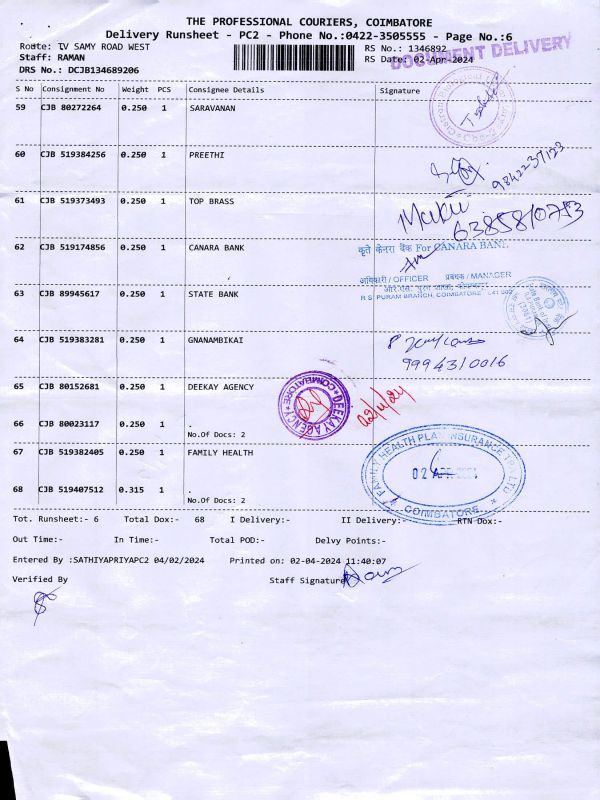 THE PROFESSIONAL COURIERS, COIMBATORE
Delivery Runsheet - PC2 - Phone No.:0422-3505555 - Page No.:6
Route: TV SAMY ROAD WEST
RS No.: 1346892
DOCUMENT DELIVERY
Staff: RAMAN
RS Date: 02-Apr-2024
DRS No.: DCJB134689206
S No Consignment No Weight PCS Consignee Details Signature
59 CJB 80272264 0.250 1 SARAVANAN
60 CJB 519384256 0.250 1 PREETHI
9842237123
61 CJB 519373493 0.250 1 TOP BRASS
6385810753
62 CJB 519174856 0.250 1 CANARA BANK
कृते केनरा बैंक For CANARA BANK
अधिकारी/OFFICER प्रबंधक/MANAGER
R S PURAM BRANCH, COIMBATORE
63 CJB 89945617 0.250 1 STATE BANK
64 CJB 519383281 0.250 1 GNANAMBIKAI
9994310016
65 CJB 80152681 0.250 1 DEEKAY AGENCY
DEEKAY AGENCY
COIMBATORE
02/4/24
66 CJB 80023117 0.250 1 .
No.Of Docs: 2
67 CJB 519382405 0.250 1 FAMILY HEALTH
FAMILY HEALTH PLAN INSURANCE TPA LTD
02 APR 2024
COIMBATORE
68 CJB 519407512 0.315 1 .
No.Of Docs: 2
Tot. Runsheet:- 6 Total Dox:- 68 I Delivery:- II Delivery:- RTN Dox:-
Out Time:- In Time:- Total POD:- Delvy Points:-
Entered By :SATHIYAPRIYAPC2 04/02/2024 Printed on: 02-04-2024 11:40:07
Verified By Staff Signature